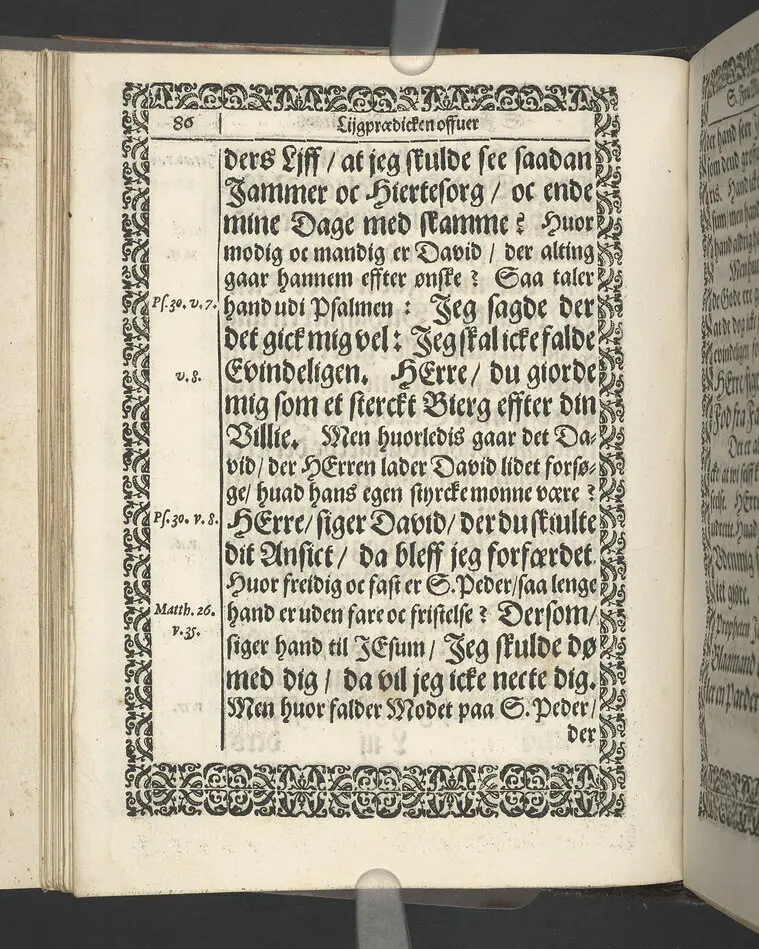 86
Lijgprædicken offuer
ders Lijff / at jeg skulde see saadan
Jammer oc Hiertesorg / oc ende
mine Dage med skamme? Huor
modig oc mandig er David / der alting
gaar hannem effter ønske? Saa taler
Ps. 30. v. 7. hand udi Psalmen: Jeg sagde der
det gick mig vel: Jeg skal icke falde
v. 8. Evindeligen. HErre / du giorde
mig som et sterckt Bierg effter din
Villie. Men huorledis gaar det Da-
vid / der HErren lader David lidet forsø-
ge / huad hans egen styrcke monne være?
Ps. 30. v. 8. HErre / siger David / der du skiulte
dit Ansict / da bleff jeg forfærdet
Huor freidig oc fast er S. Peder / saa lenge
Matth. 26. hand er uden fare oc fristelse? Dersom /
v. 35. siger hand til JEsum / Jeg skulde dø
med dig / da vil jeg icke necte dig.
Men huor falder Modet paa S. Peder /
der